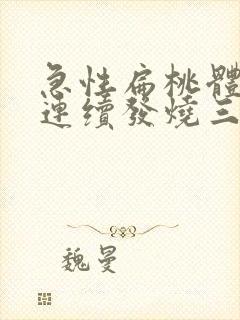 急性扁桃體
連續發燒三
魏曼